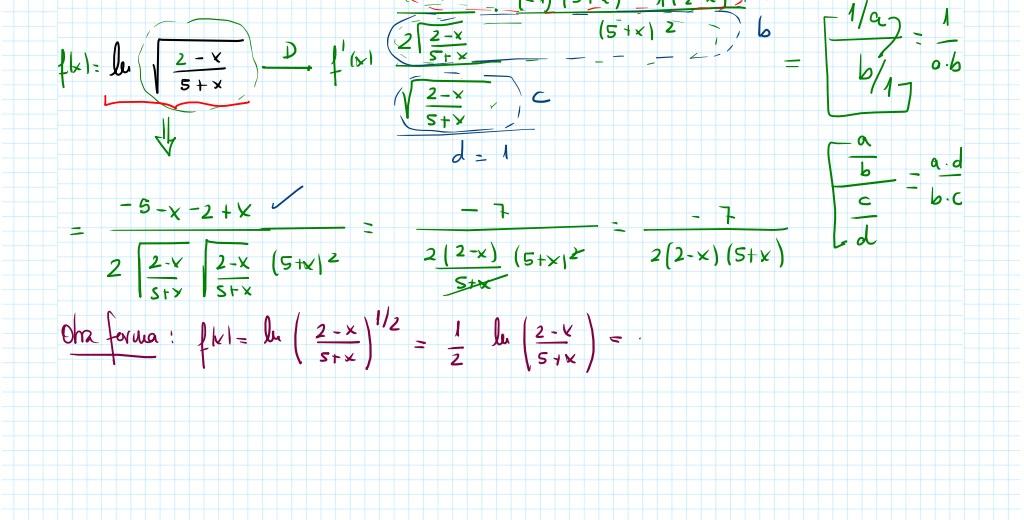 f(x) = ln √((2-x)/(5+x)) —D→ f'(x)
2√((2-x)/(5+x)) (5+x)² b
√((2-x)/(5+x)) c
d = 1
=
(1/a)/(b/1) = 1/(a·b)
(a/b)/(c/d) = (a·d)/(b·c)
⇓
= (-5-x-2+x)/(2√((2-x)/(5+x)) √((2-x)/(5+x)) (5+x)²) ✓ = -7/(2(2-x)/(5+x) (5+x)²) = -7/(2(2-x)(5+x))
Otra forma: f(x) = ln((2-x)/(5+x))^1/2 = 1/2 ln((2-x)/(5+x)) =